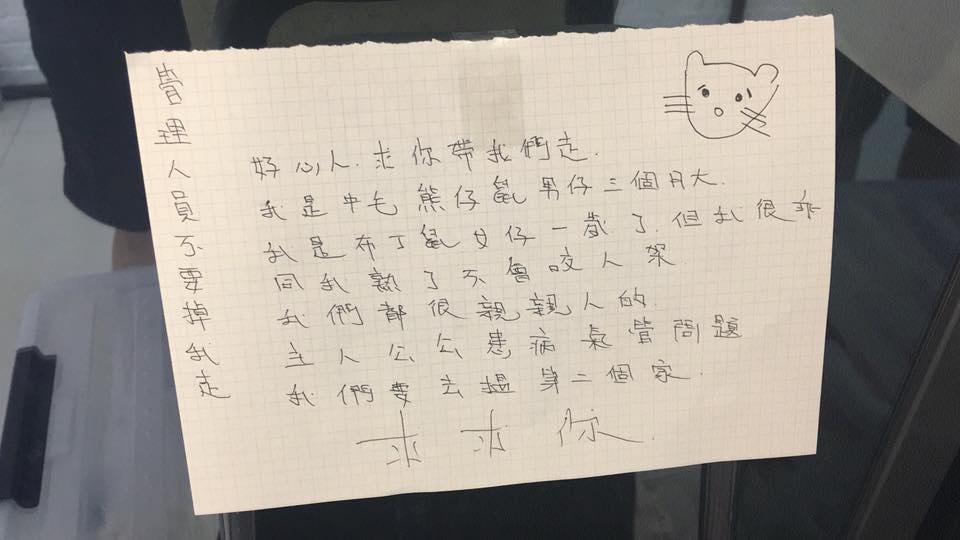 管理人員不要掉我走
好心人.求你帶我們走.
我是中毛熊仔鼠男仔三個月大.
我是布丁鼠女仔一歲了.但我很乖
同我熟了不會咬人架.
我們都很親親人的.
主人公公患病氣管問題
我們要去搵第二個家.
求求你.